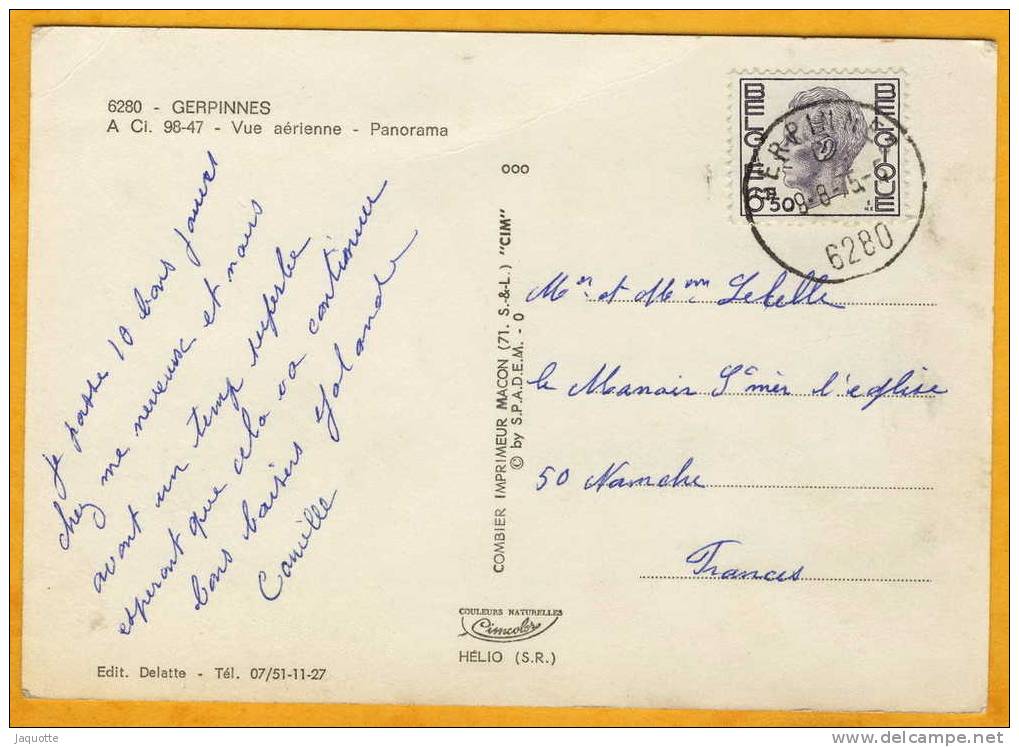 6280 - GERPINNES
A Ci. 98-47 - Vue aérienne - Panorama
je passe 10 bons jours
chez me neveux et nous
avont un temp superbe
esperont que cela va continuer
bons baisers Yolande
Camille
Edit. Delatte - Tél. 07/51-11-27
ooo
COMBIER IMPRIMEUR MACON (71. S.-&-L.) "CIM"
© by S.P.A.D.E.M. - O
COULEURS NATURELLES
Cimcolor
HÉLIO (S.R.)
BELGIE BELGIQUE
6F50
GERPINNES
9-8-75
6280
Mr et Mme Lebelle
le Manoir Ste mèr l'eglise
50 Manche
Frances
Jaquotte
http://www.delcampe.net